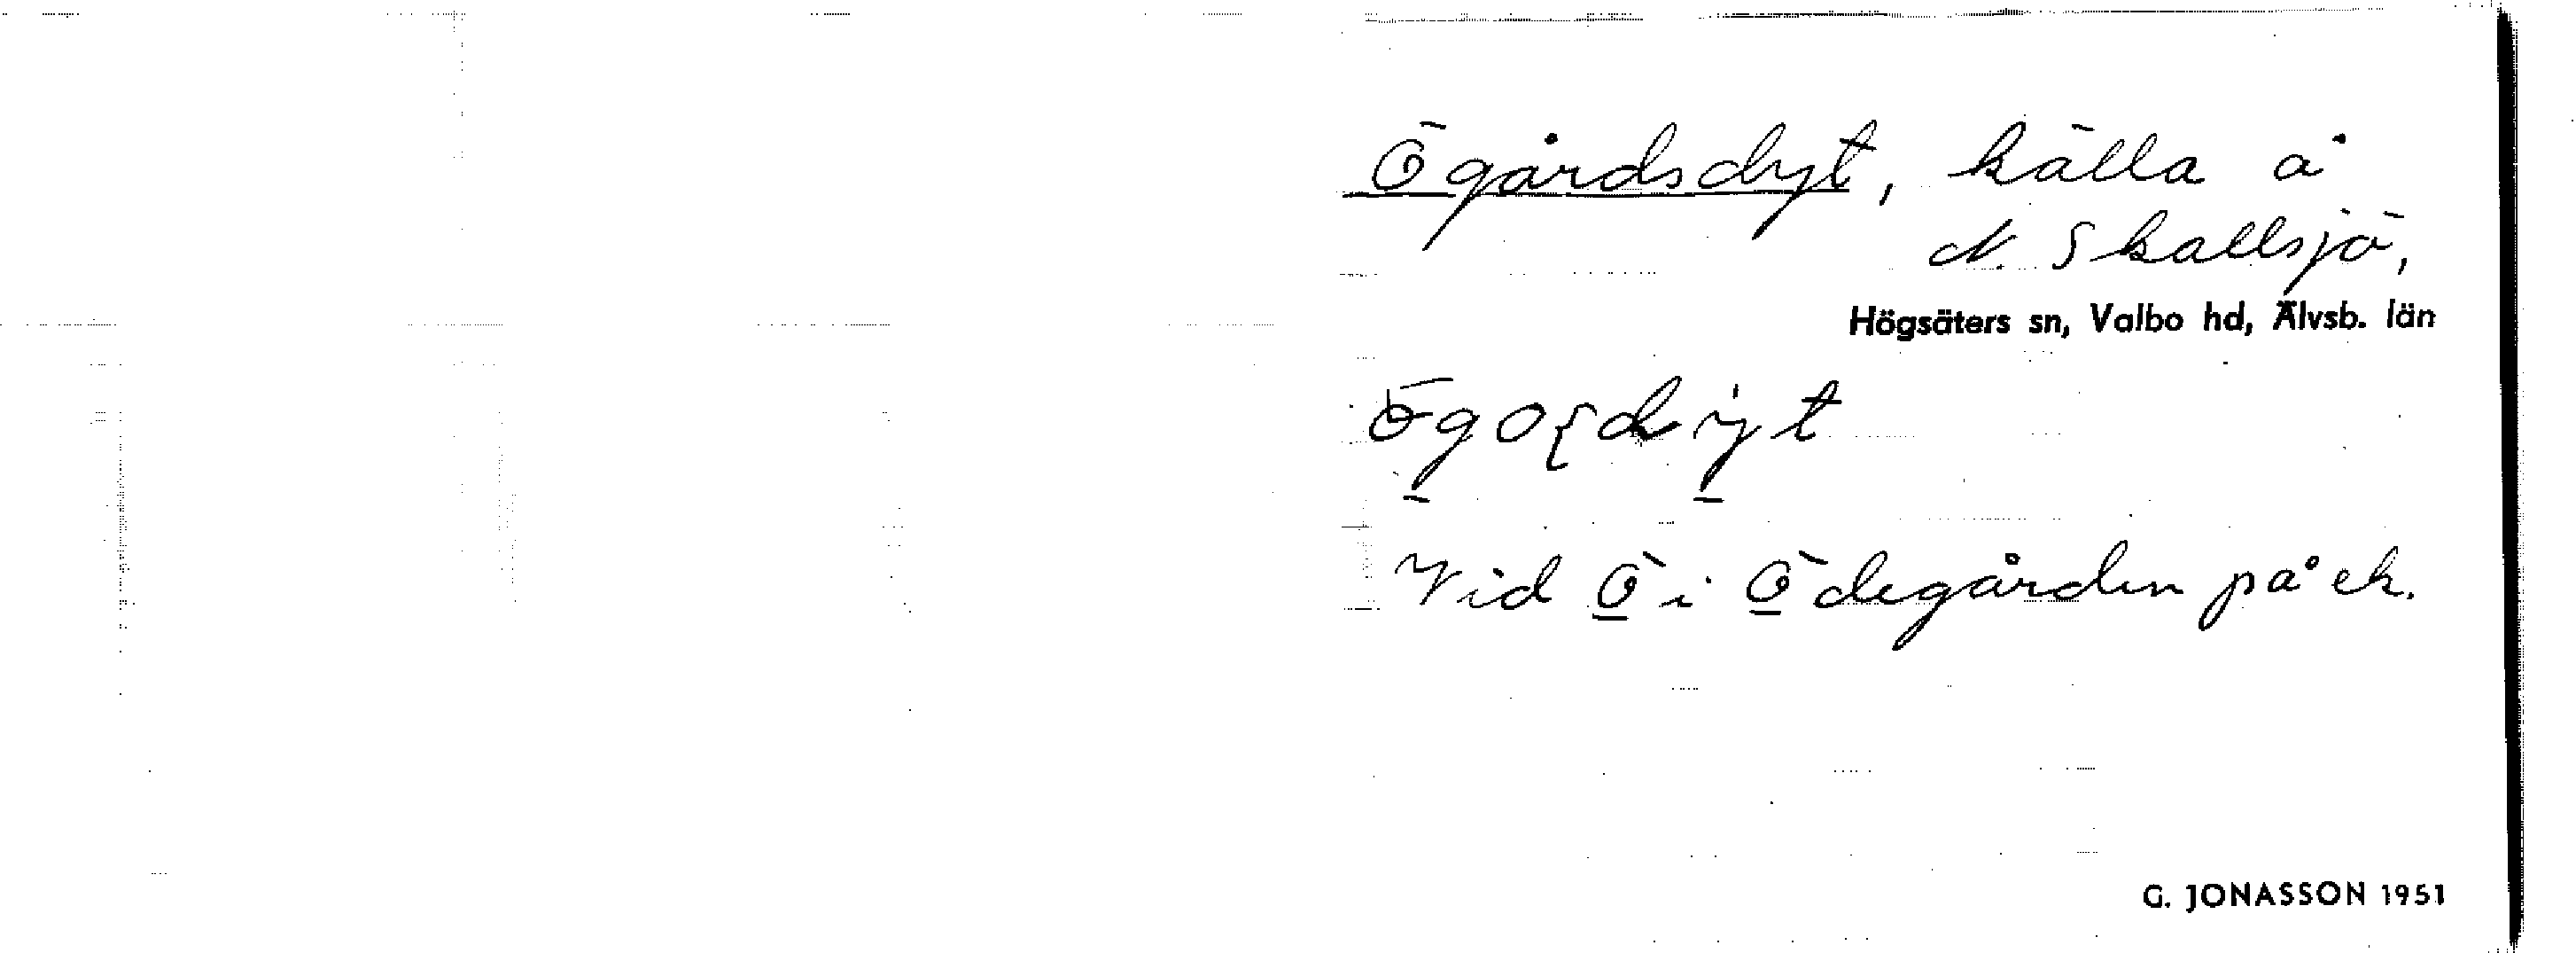 Ögårdsdyt, källa å
N. Skallsjö,
Högsäters sn, Valbo hd, Älvsb. län
Vid Ö i Ödegården på ek.
G. JONASSON 1951